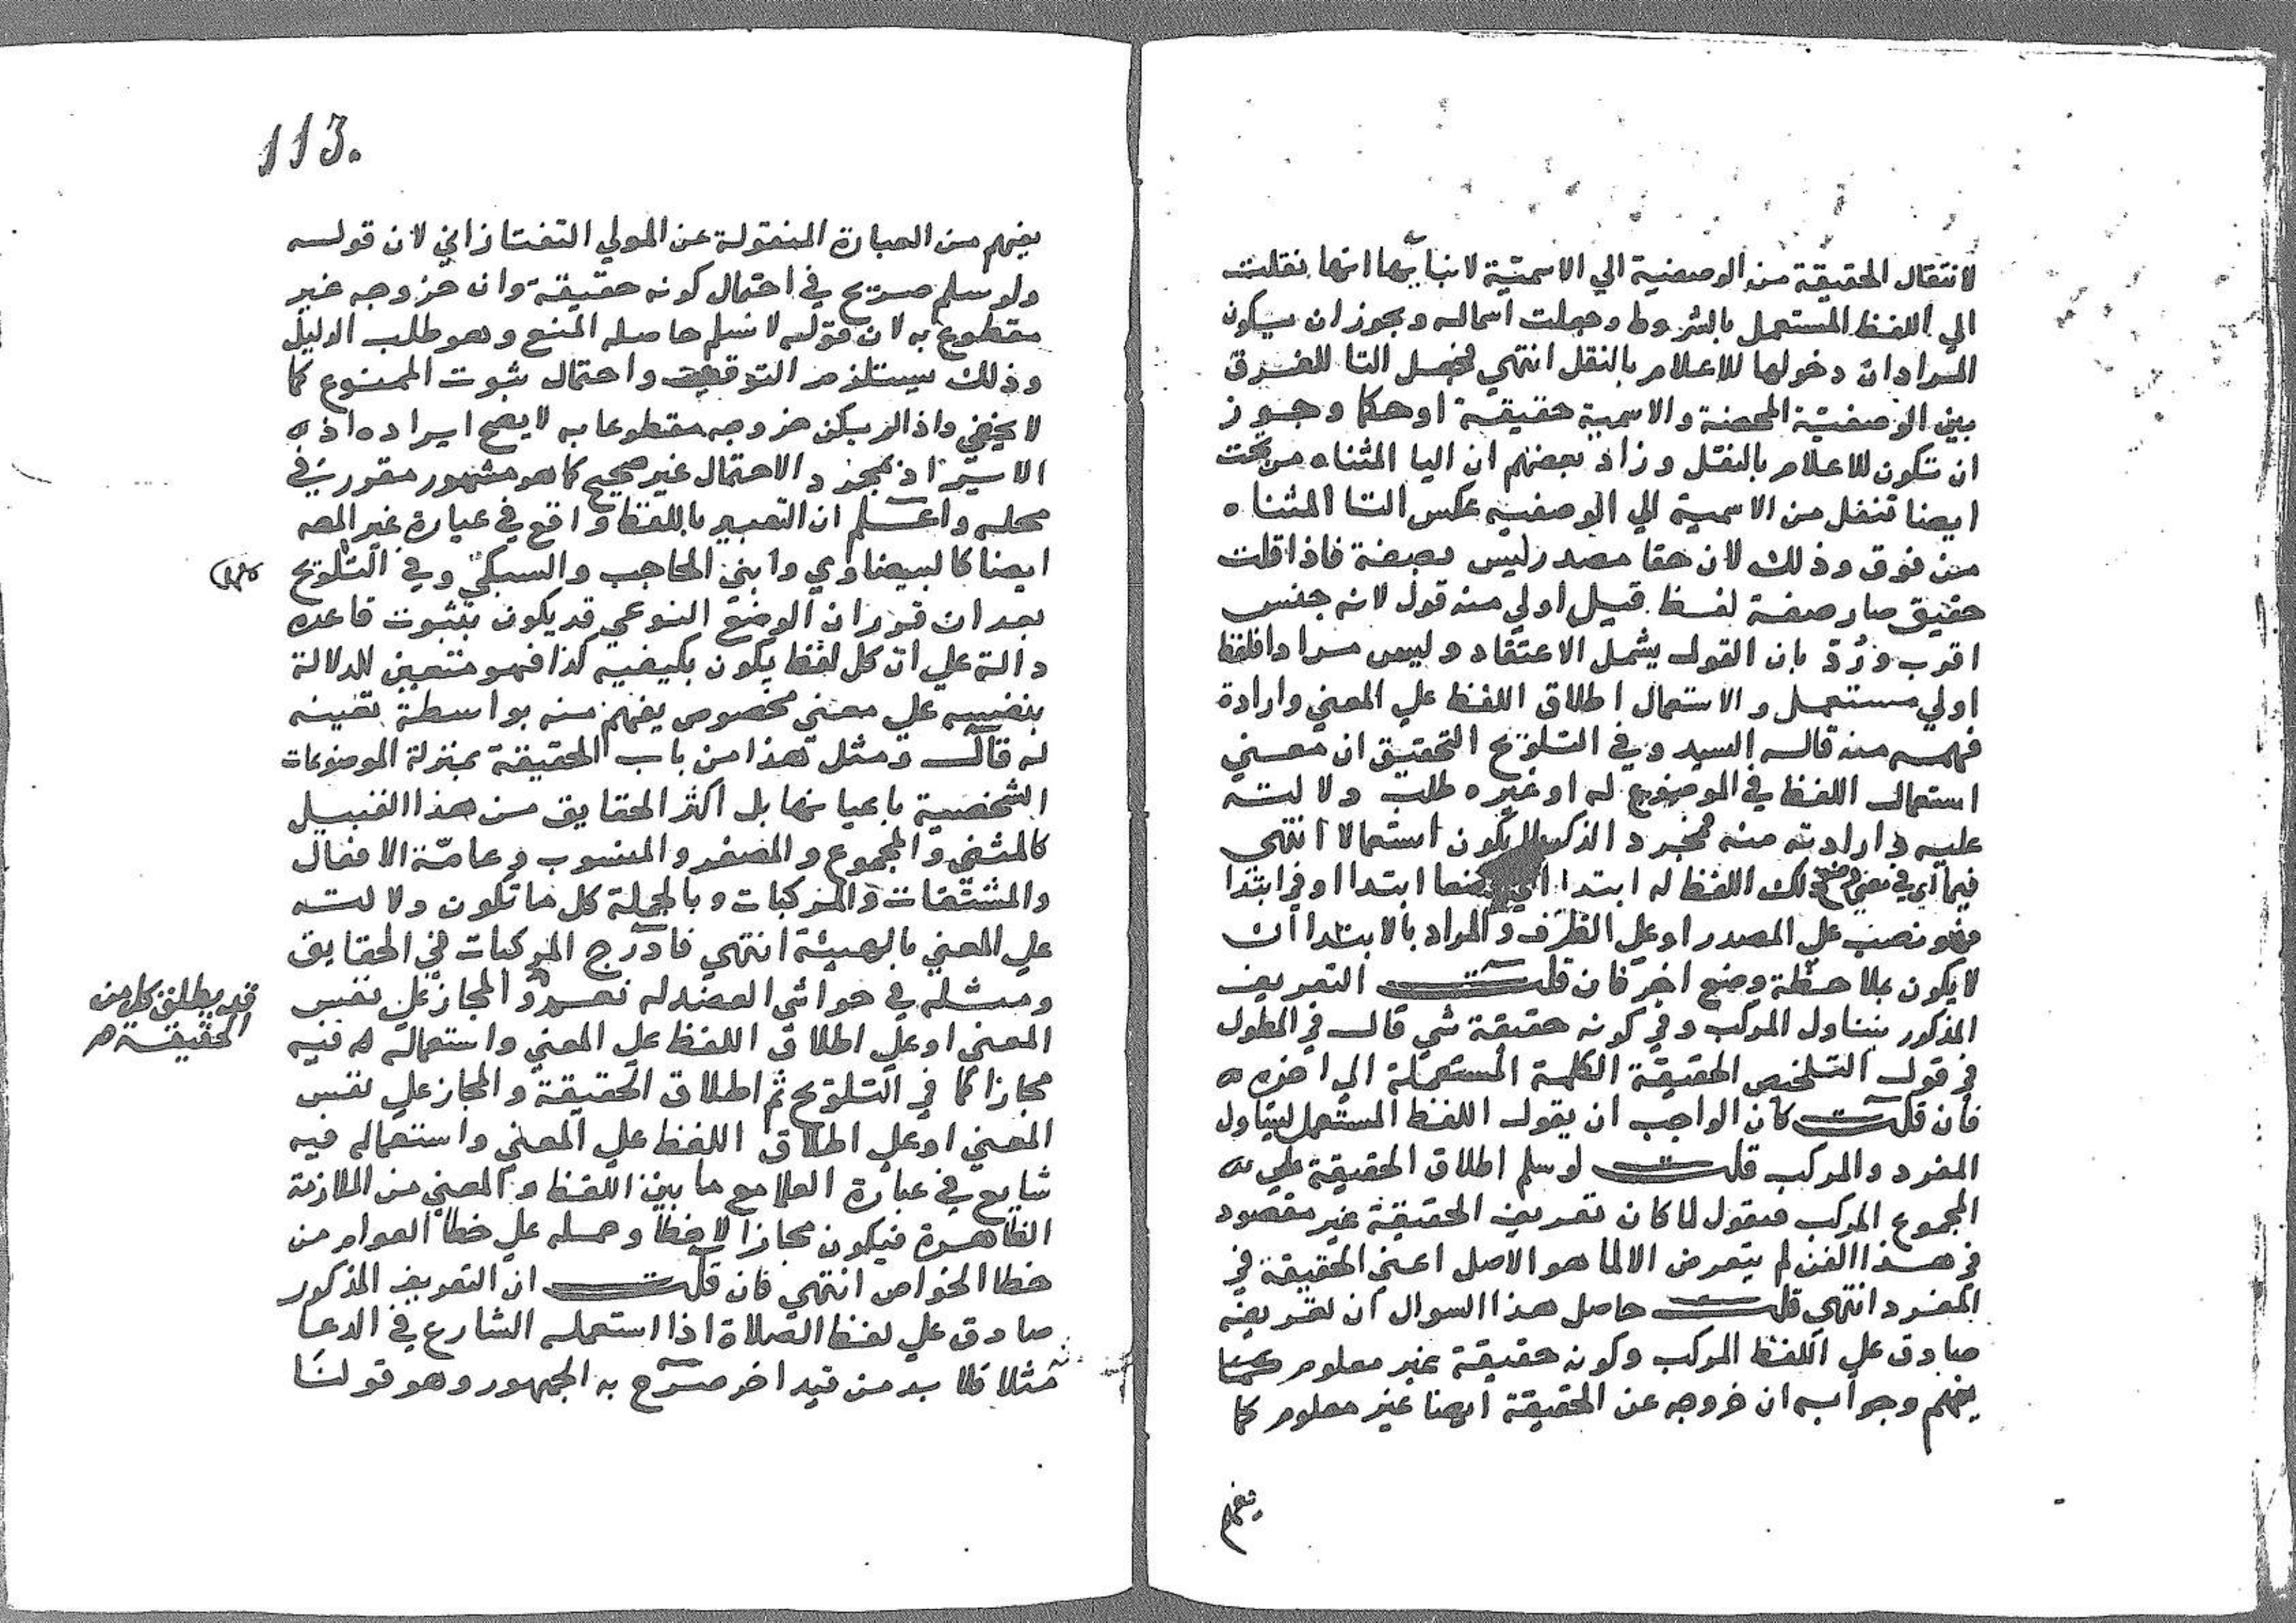 لانتقال الحقيقة من الوصفية الي الاسمية لا نبايها انها نقلت
الي اللفظ المستعمل بالشروط وجعلت اسماله ويجوز ان يكون
المراد ان دخولها للاعلام بالنقل انتهي فحصل التا للفرق
بين الوصفية المحضة والاسمية حقيقة او حكما وجوز
ان تكون للاعلام بالنقل وزاد بعضهم ان اليا المثناه من تحت
ايضا تنقل من الاسمية الي الوصفيه عكس التا المثناه
من فوق وذلك لان حقا مصدر ليس بصفة فاذا قلت
حقيق صار صفة لفظ قيل اولي منه قول لانه جنس
اقرب ورُدّ بان القول يشمل الاعتقاد وليس مرادا فلفظ
اولي مستعمل والاستعمال اطلاق اللفظ علي المعني وارادة
فهمه منه قاله السيد وفي التلويح التحقيق ان معني
استعمال اللفظ في الموضوع له او غيره طلب دلالته
عليه وارادته منه فمجرد الذكر لا يكون استعمالا انتهي
فيما اي في معني وضع ذلك اللفظ له ابتدا اي وضعا ابتدا او في ابتدا
فهو نصب علي المصدر او علي الظرف والمراد بالابتدا ان
لا يكون بملاحظة وضع اخر فان قلت التعريف
المذكور يتناول المركب وفي كونه حقيقة شي قال في المطول
في قول التلخيص الحقيقة الكلمة المستعملة الي اخره
فان قلت كان الواجب ان يقول اللفظ المستعمل ليتناول
المفرد والمركب قلت لو سلم اطلاق الحقيقة علي
المجموع المركب فيقول لما كان تعريف الحقيقة غير مقصود
في هذا الفن لم يتعرض الا لما هو الاصل اعني الحقيقة في
المفرد انتهي قلت حاصل هذا السوال ان تعريفه
صادق علي اللفظ المركب وكونه حقيقة غير معلوم كما
يفهم وجوابه ان خروجه عن الحقيقة ايضا غير معلوم كما
يفهم
113.
يفهم من العبارة المنقولة عن المولي التفتازاني لان قوله
ولو سلم صريح في احتمال كونه حقيقة وان خروجه غير
مقطوع به لان قوله لا نسلم حاصله المنع وهو طلب الدليل
وذلك يستلزم التوقف واحتمال ثبوت الممنوع كما
لا يخفي واذا لم يكن خروجه مقطوعا به لا يصح ايراده اذ
الايراد بمجرد الاحتمال غير صحيح كما هو مشهور مقرر في
محله واعلم ان التعبير باللفظ واقع في عبارة غير المصه
ايضا كالبيضاوي وابني الحاجب والسبكي وفي التلويح
بعد ان قرر ان الوضع النوعي قد يكون بثبوت قاعده
دالة علي ان كل لفظ يكون بكيفيه كذا فهو متعين للدلالة
بنفسه علي معني مخصوص يفهم منه بواسطة تعينه
له قال ومثل هذا من باب الحقيقة بمنزلة الموضوعات
الشخصية باعيانها بل اكثر الحقايق من هذا القبيل
كالمثني والمجموع والمصغر والمنسوب وعامّة الافعال
والمشتقات والمركبات وبالجملة كل ما تكون دلالته
علي المعني بالهيئة انتهي فادرج المركبات في الحقايق
ومثله في حواشي العضد له نعم والمجاز علي نفس
قد يطلق كل من
الحقيقة
المعني او علي اطلاق اللفظ علي المعني واستعماله فيه
مجازا كما في التلويح ثم اطلاق الحقيقة والمجاز علي نفس
المعني او علي اطلاق اللفظ علي المعني واستعماله فيه
شايع في عبارة العلما مع ما بين اللفظ والمعني من الملازمة
الظاهرة فيكون مجازا لا خطا وحمله علي خطا العوام من
خطا الخواص انتهي فان قلت ان التعريف المذكور
صادق علي لفظ الصلاة اذا استعمله الشارع في الدعا
مثلا فلا بد من قيد اخر صرّح به الجمهور وهو قولنا